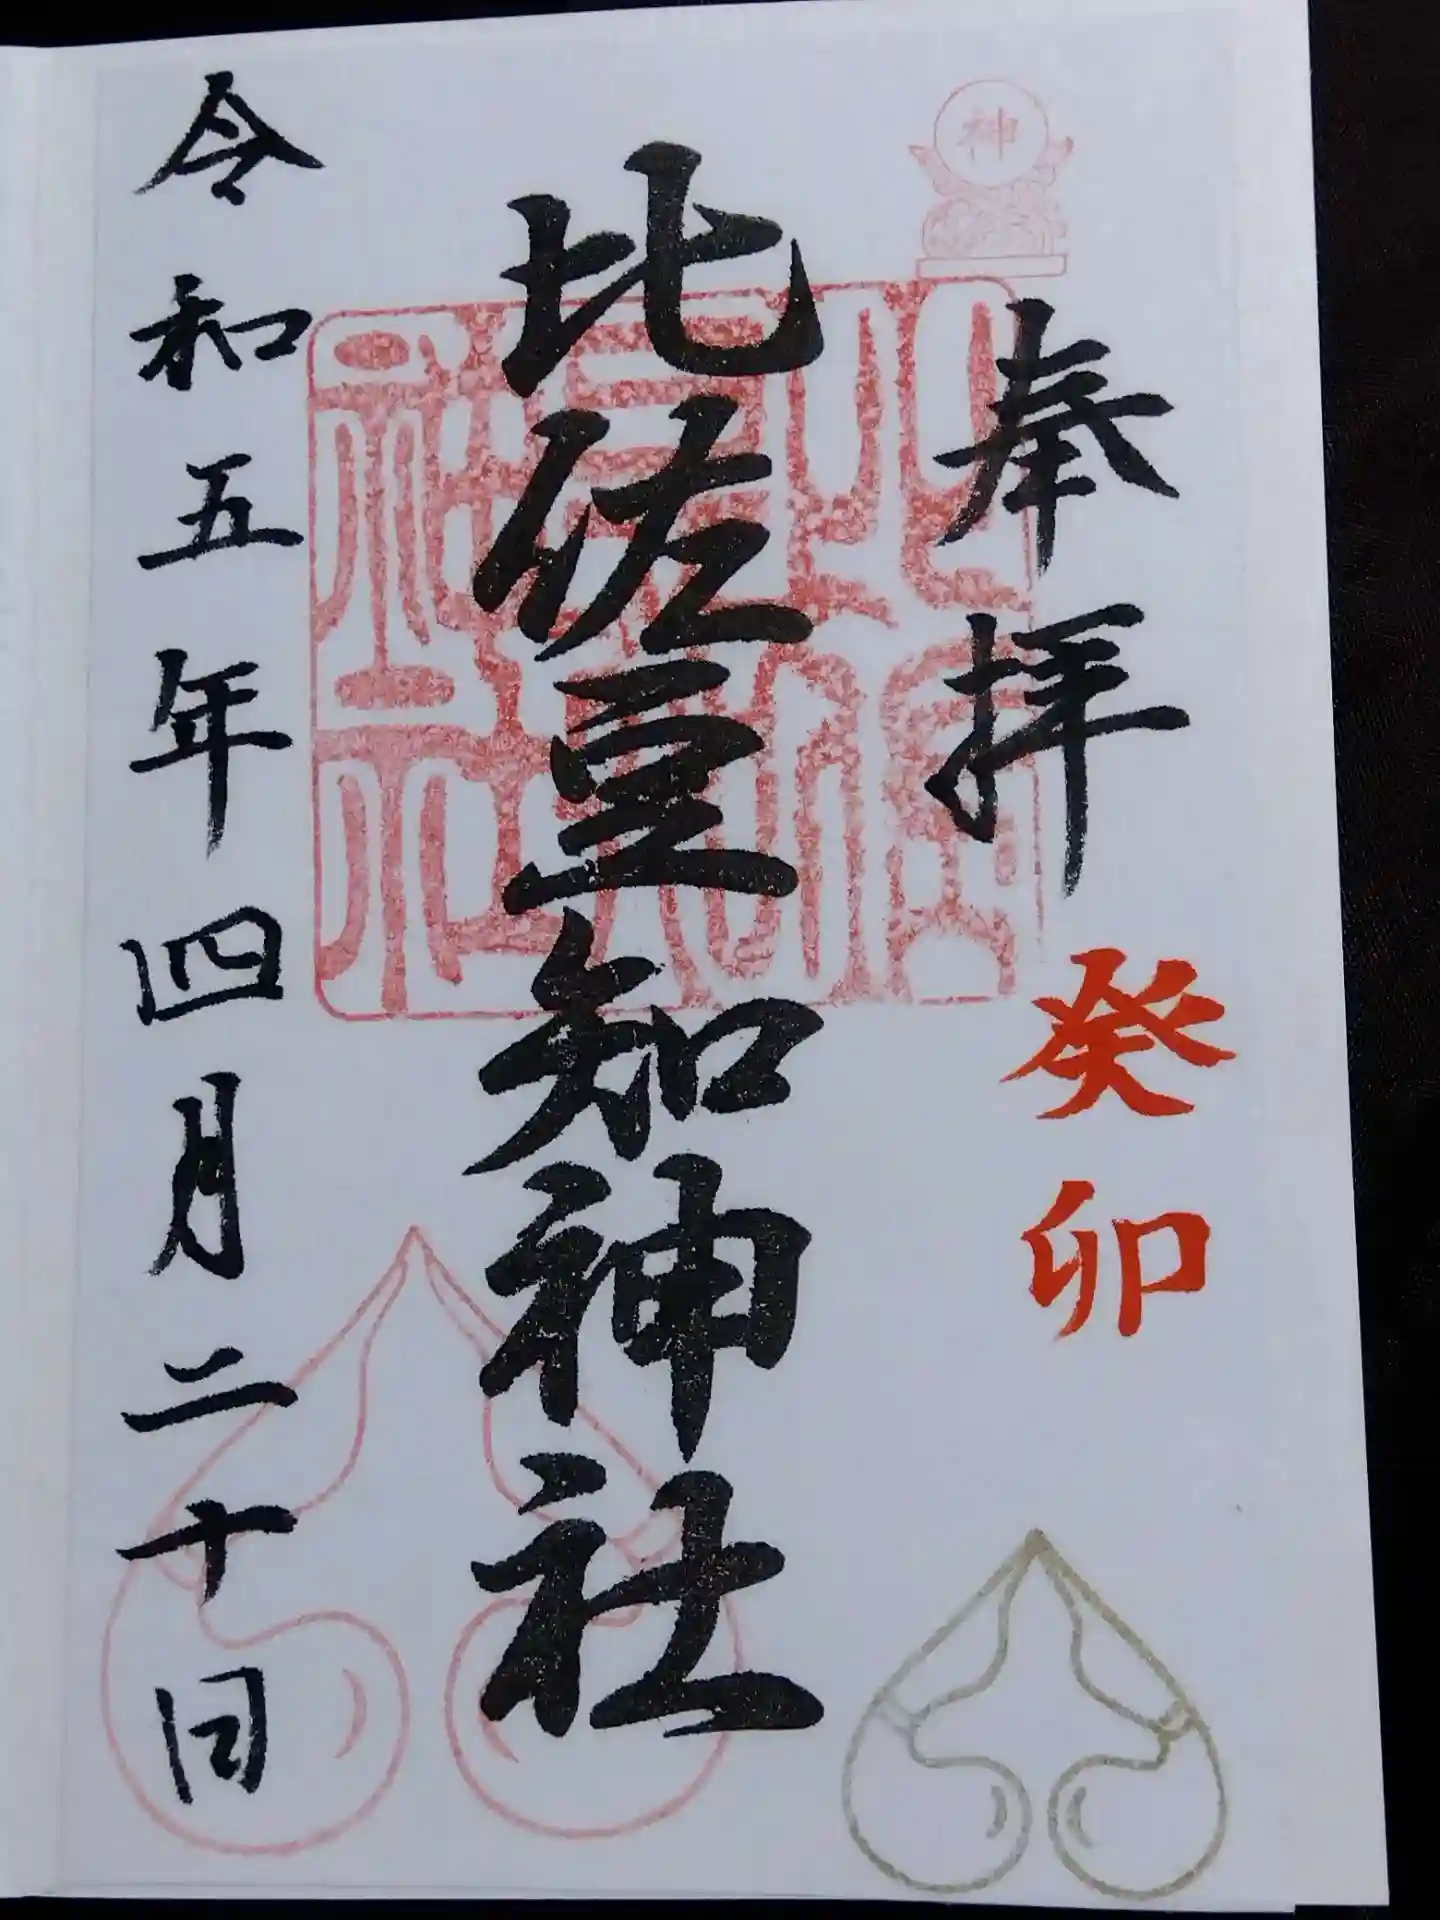 神
奉拝
癸卯
比佐豆知神社
令和五年四月二十日